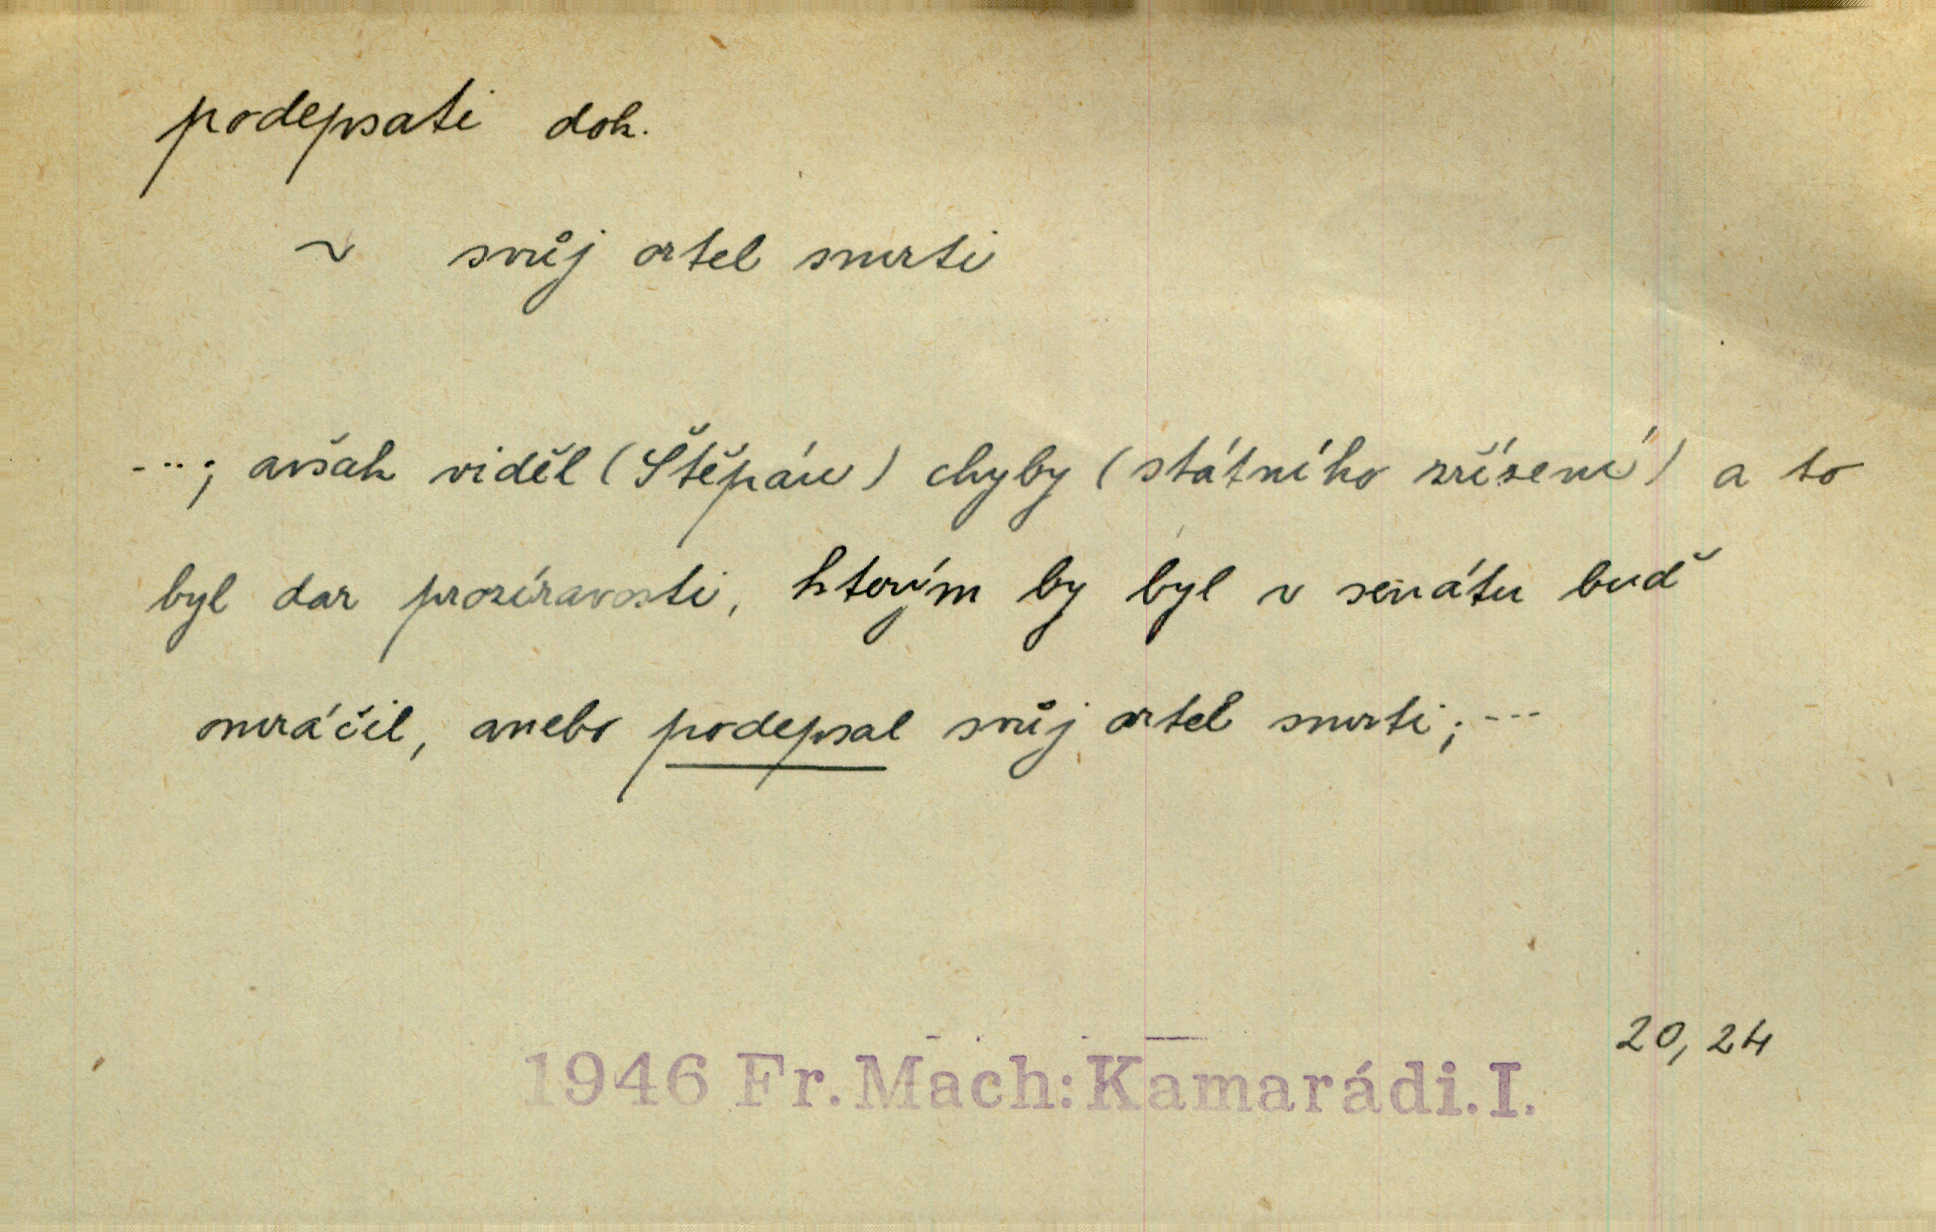 podepsati dok.
~ svůj ortel smrti
...; avšak viděl (Štěpán) chyby (státního zřízení) a to
byl dar prozíravosti, kterým by byl v senátu buď
omráčil, anebo podepsal svůj ortel smrti; ---
20, 24
1946 Fr. Mach: Kamarádi. I.